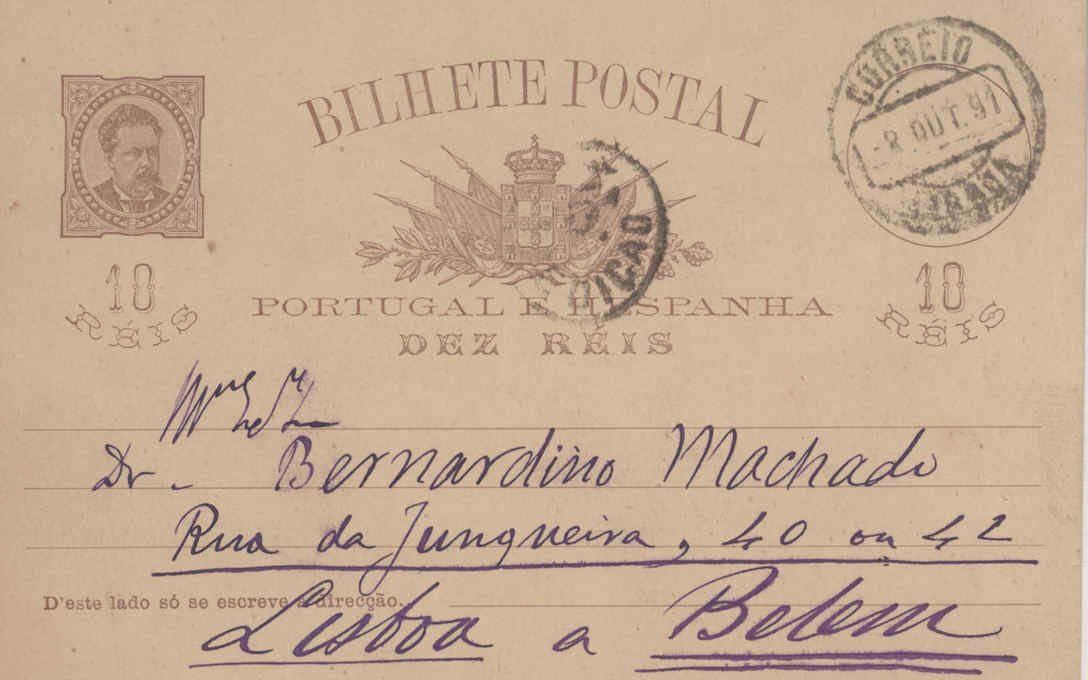 BILHETE POSTAL
CORREIO
8 OUT. 91
LISBOA
10 RÉIS
10 RÉIS
PORTUGAL E HESPANHA
DEZ REIS
Dr. Bernardino Machado
Rua da Junqueira, 40 ou 42
D'este lado só se escreve a direcção.
Lisboa a Belem